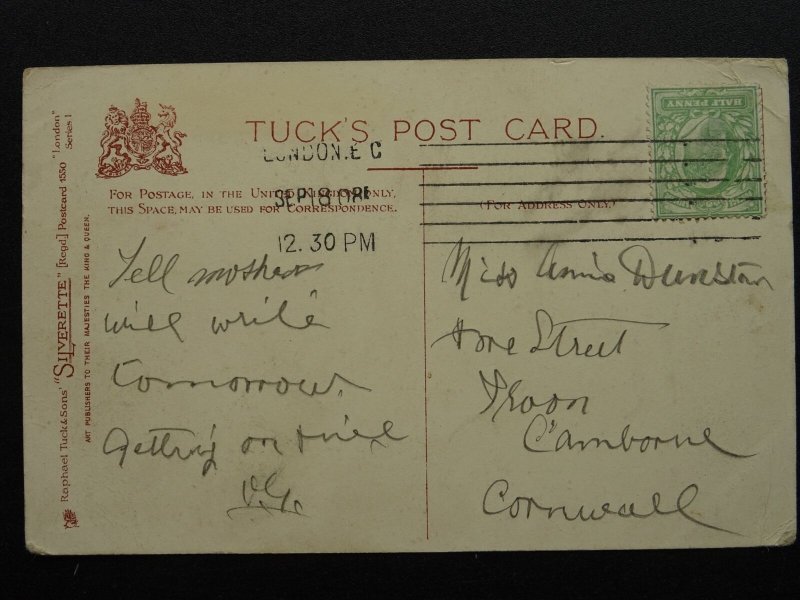 TUCK'S POST CARD.
LONDON.E C
SEP 18 08
12. 30 PM
FOR POSTAGE, IN THE UNITED KINGDOM ONLY,
THIS SPACE, MAY BE USED FOR CORRESPONDENCE.
(FOR ADDRESS ONLY.)
HALF PENNY
Raphael Tuck & Sons' "SILVERETTE" [Regd.] Postcard 1550 "London" Series 1
ART PUBLISHERS TO THEIR MAJESTIES THE KING & QUEEN.
Tell mother
will write
tomorrow.
Getting on
Miss Annie Dunstan
Street
Troon
Camborne
Cornwall